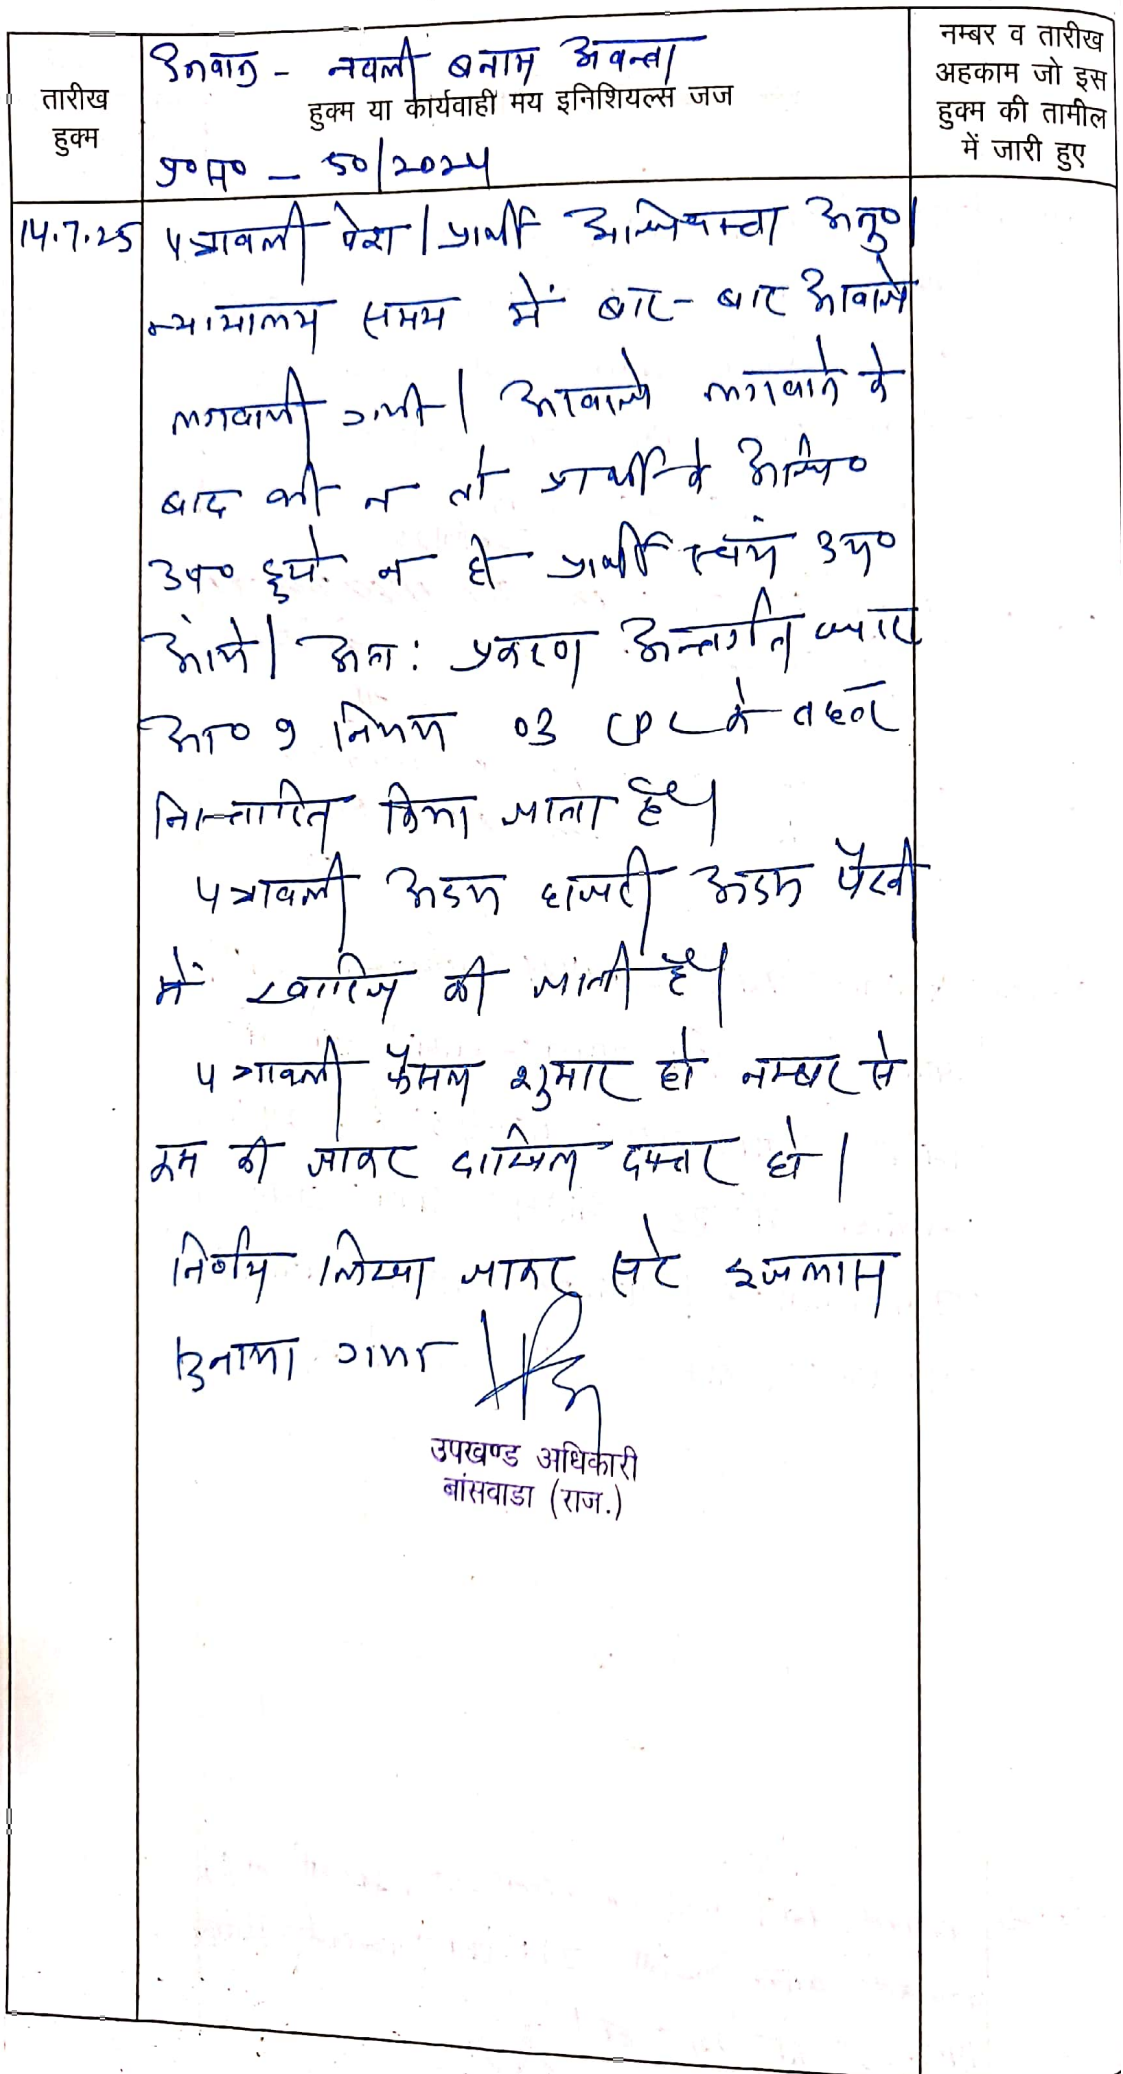 तारीख
हुक्म
उनवान - नवली बनाम अवन्ता
हुक्म या कार्यवाही मय इनिशियल्स जज
प्र०स० - 50/2024
नम्बर व तारीख
अहकाम जो इस
हुक्म की तामील
में जारी हुए
14.7.25 पत्रावली पेश। प्रार्थी अधिवक्ता अनु०।
न्यायालय समय में बार-बार आवाजे
लगवायी गयी। आवाजे लगवाने के
बाद भी न तो प्रार्थी के अधि०
उप० हुये न ही प्रार्थी स्वयं उप०
आये। अतः प्रकरण अन्तर्गत
आ० 9 नियम 03 CPC के तहत
निस्तारित किया जाता है।
पत्रावली अदम हाजरी अदम पैरवी
में खारिज की जाती है।
पत्रावली फैसल शुमार हो नम्बर से
कम की जाकर दाखिल दफ्तर हो।
निर्णय लिखा जाकर सरे इजलास
सुनाया गया
उपखण्ड अधिकारी
बांसवाडा (राज.)